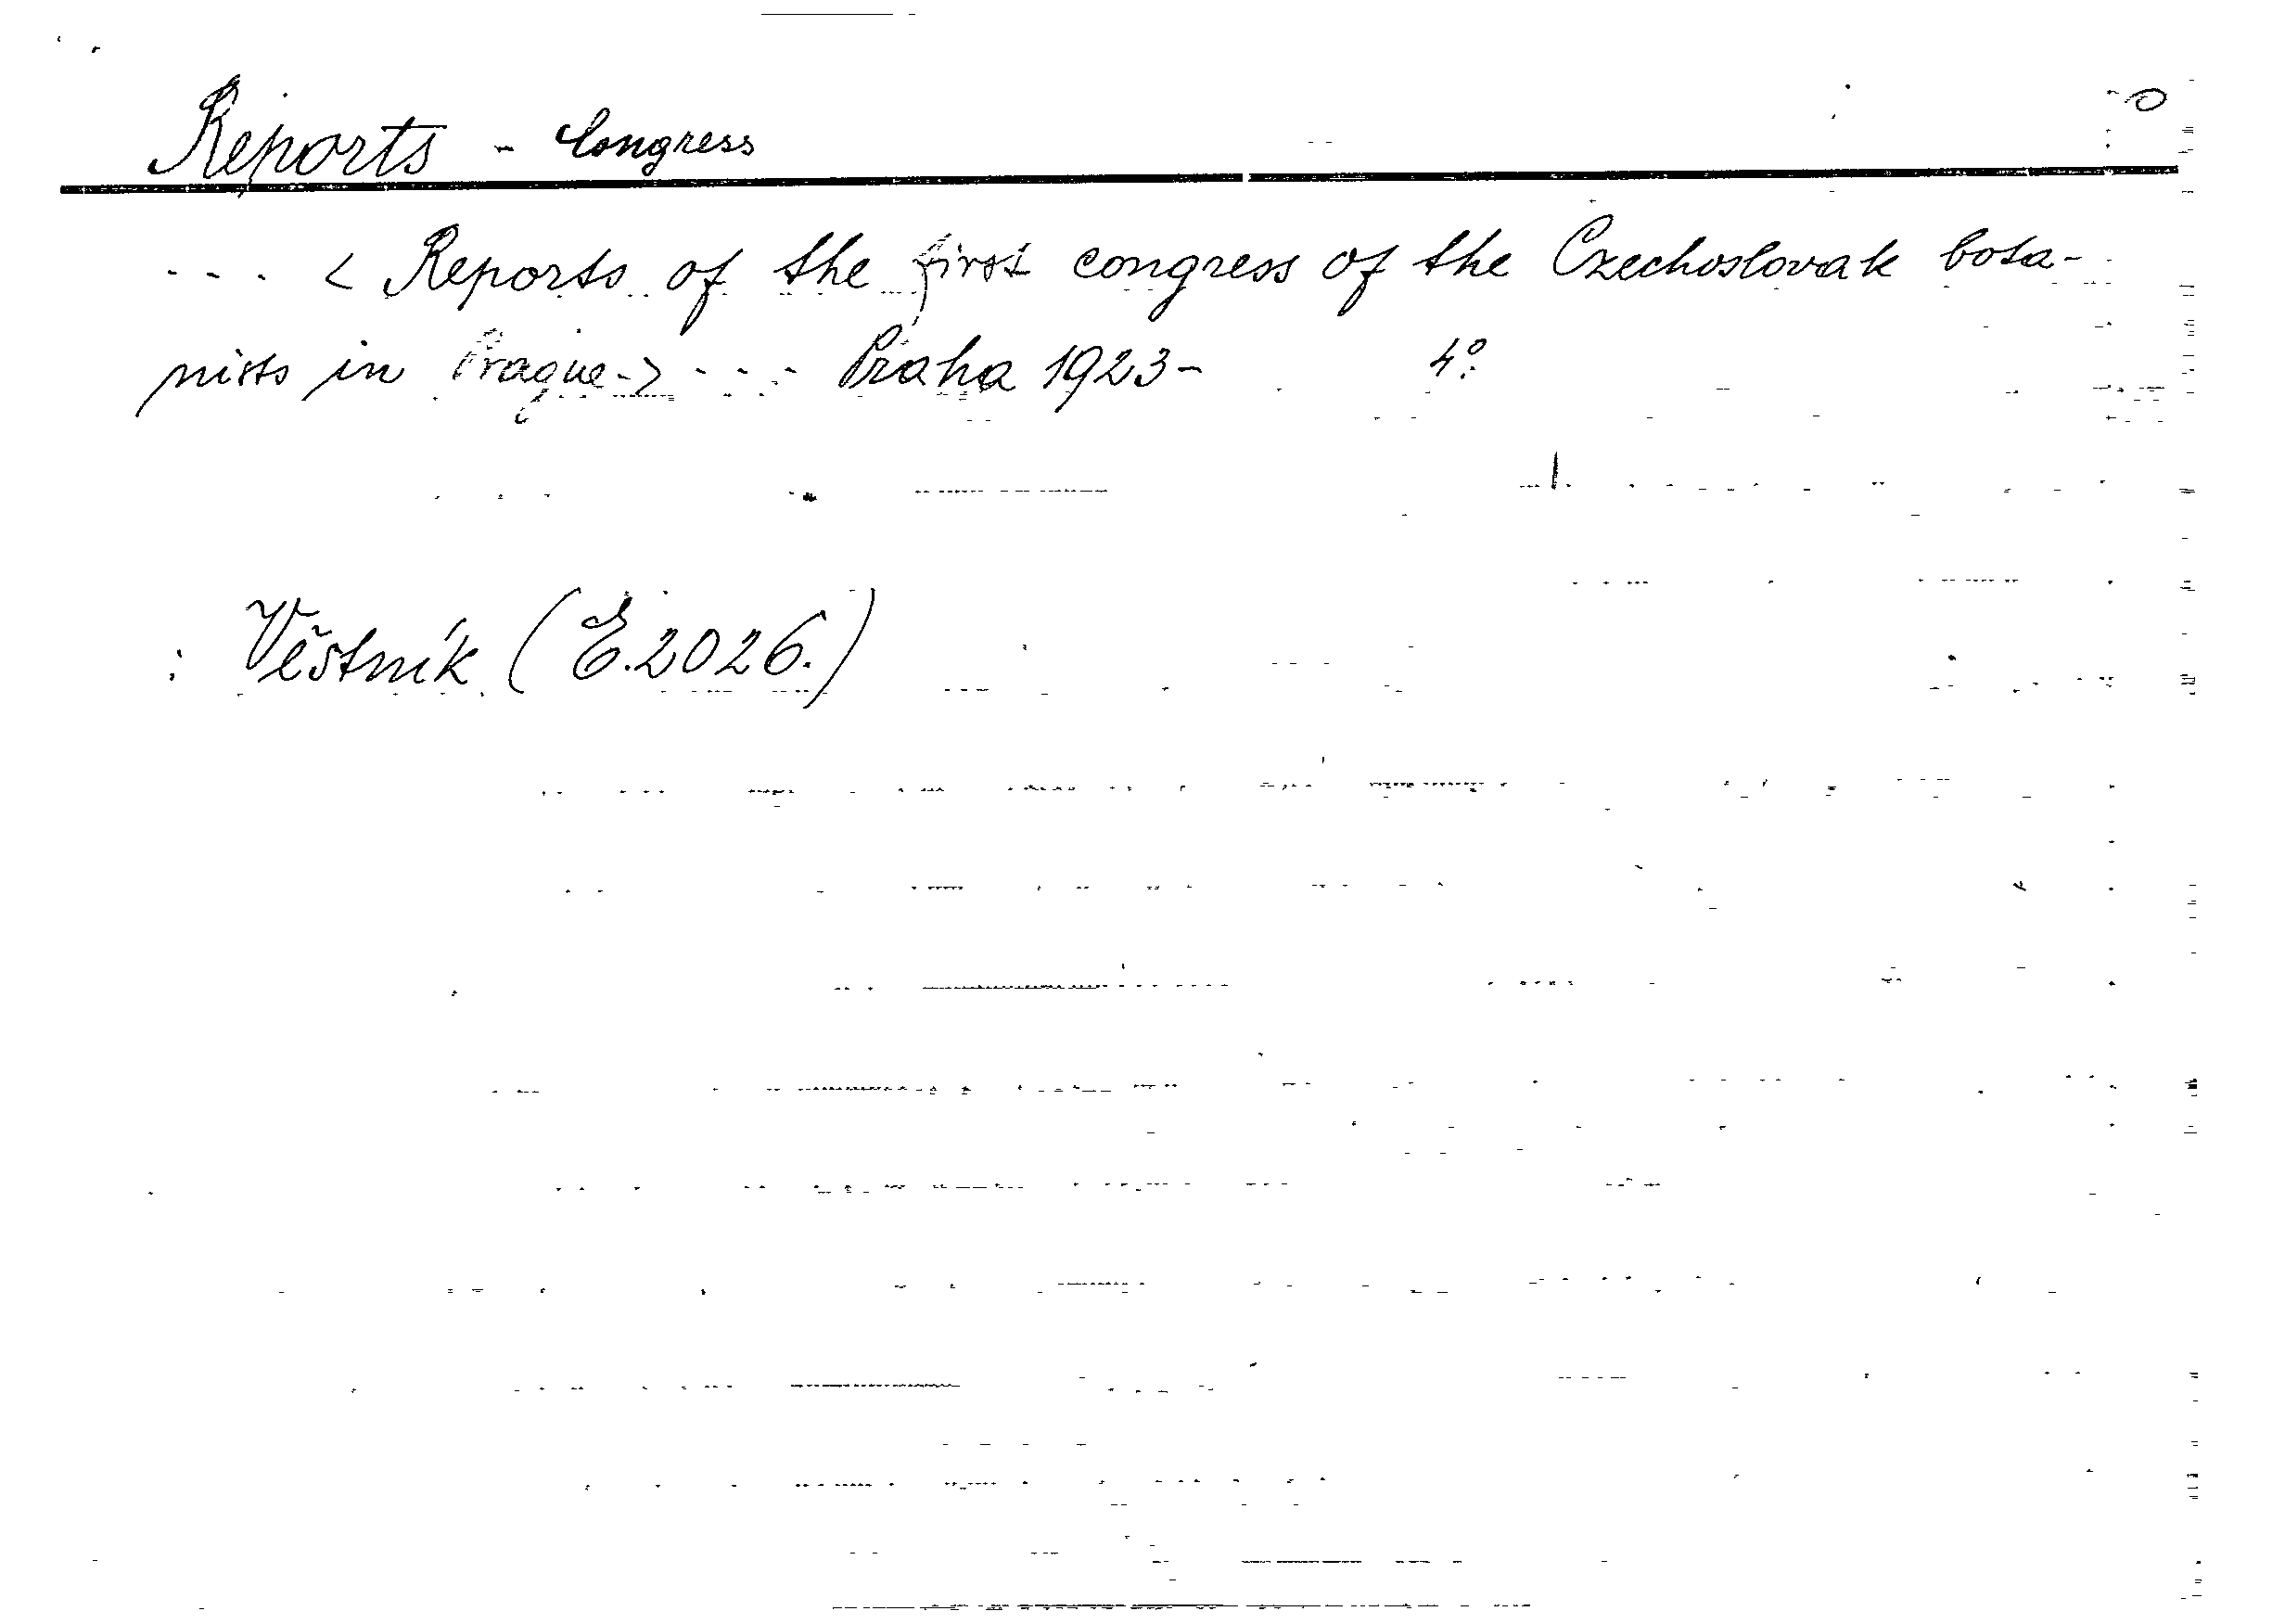 Reports - Congress
... < Reports of the first congress of the Czechoslovak bota-
nists in Prague.> ... Praha 1923- 4°.
: Věstník (E.2026.)